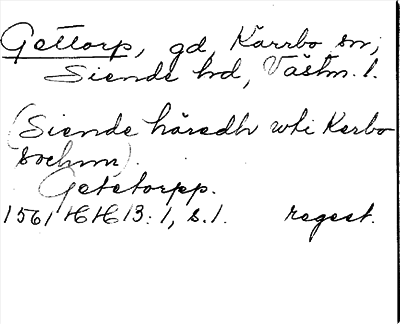 Gettorp, gd, Kärrbo sn,
Siende hd, Västm. l.
(Siende häredh wti Kerbo
sochnn).
Getetorpp.
1561 HH 13:1, s. 1. regest.